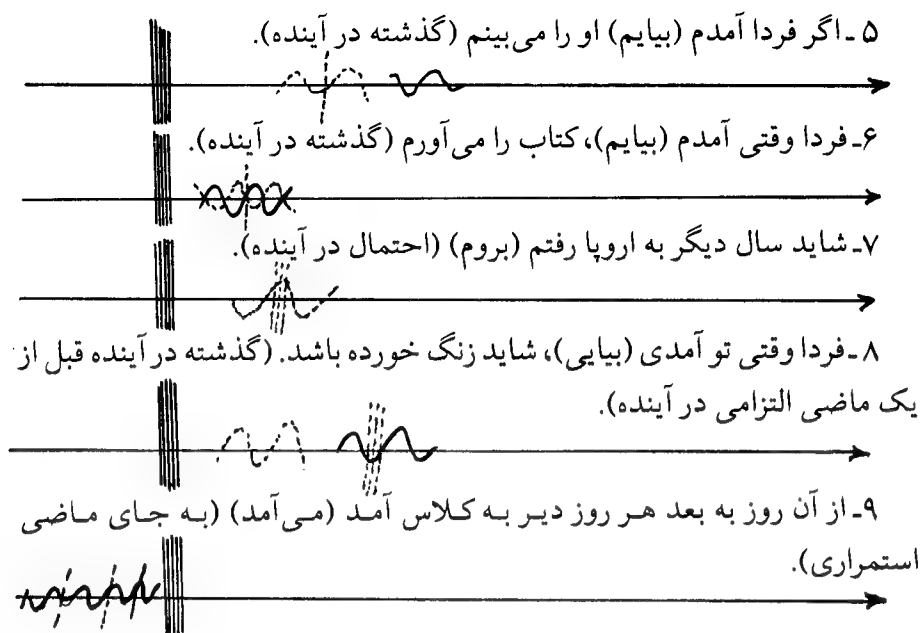 ۵ ـ اگر فردا آمدم (بیایم) او را می‌بینم (گذشته در آینده).
۶ـ فردا وقتی آمدم (بیایم)، کتاب را می‌آورم (گذشته در آینده).
۷ـ شاید سال دیگر به اروپا رفتم (بروم) (احتمال در آینده).
۸ ـ فردا وقتی تو آمدی (بیایی)، شاید زنگ خورده باشد. (گذشته در آینده قبل از
یک ماضی التزامی در آینده).
۹ـ از آن روز به بعد هـر روز دیـر بـه کـلاس آمـد (مـی‌آمد) (بـه جـای مـاضی
استمراری).